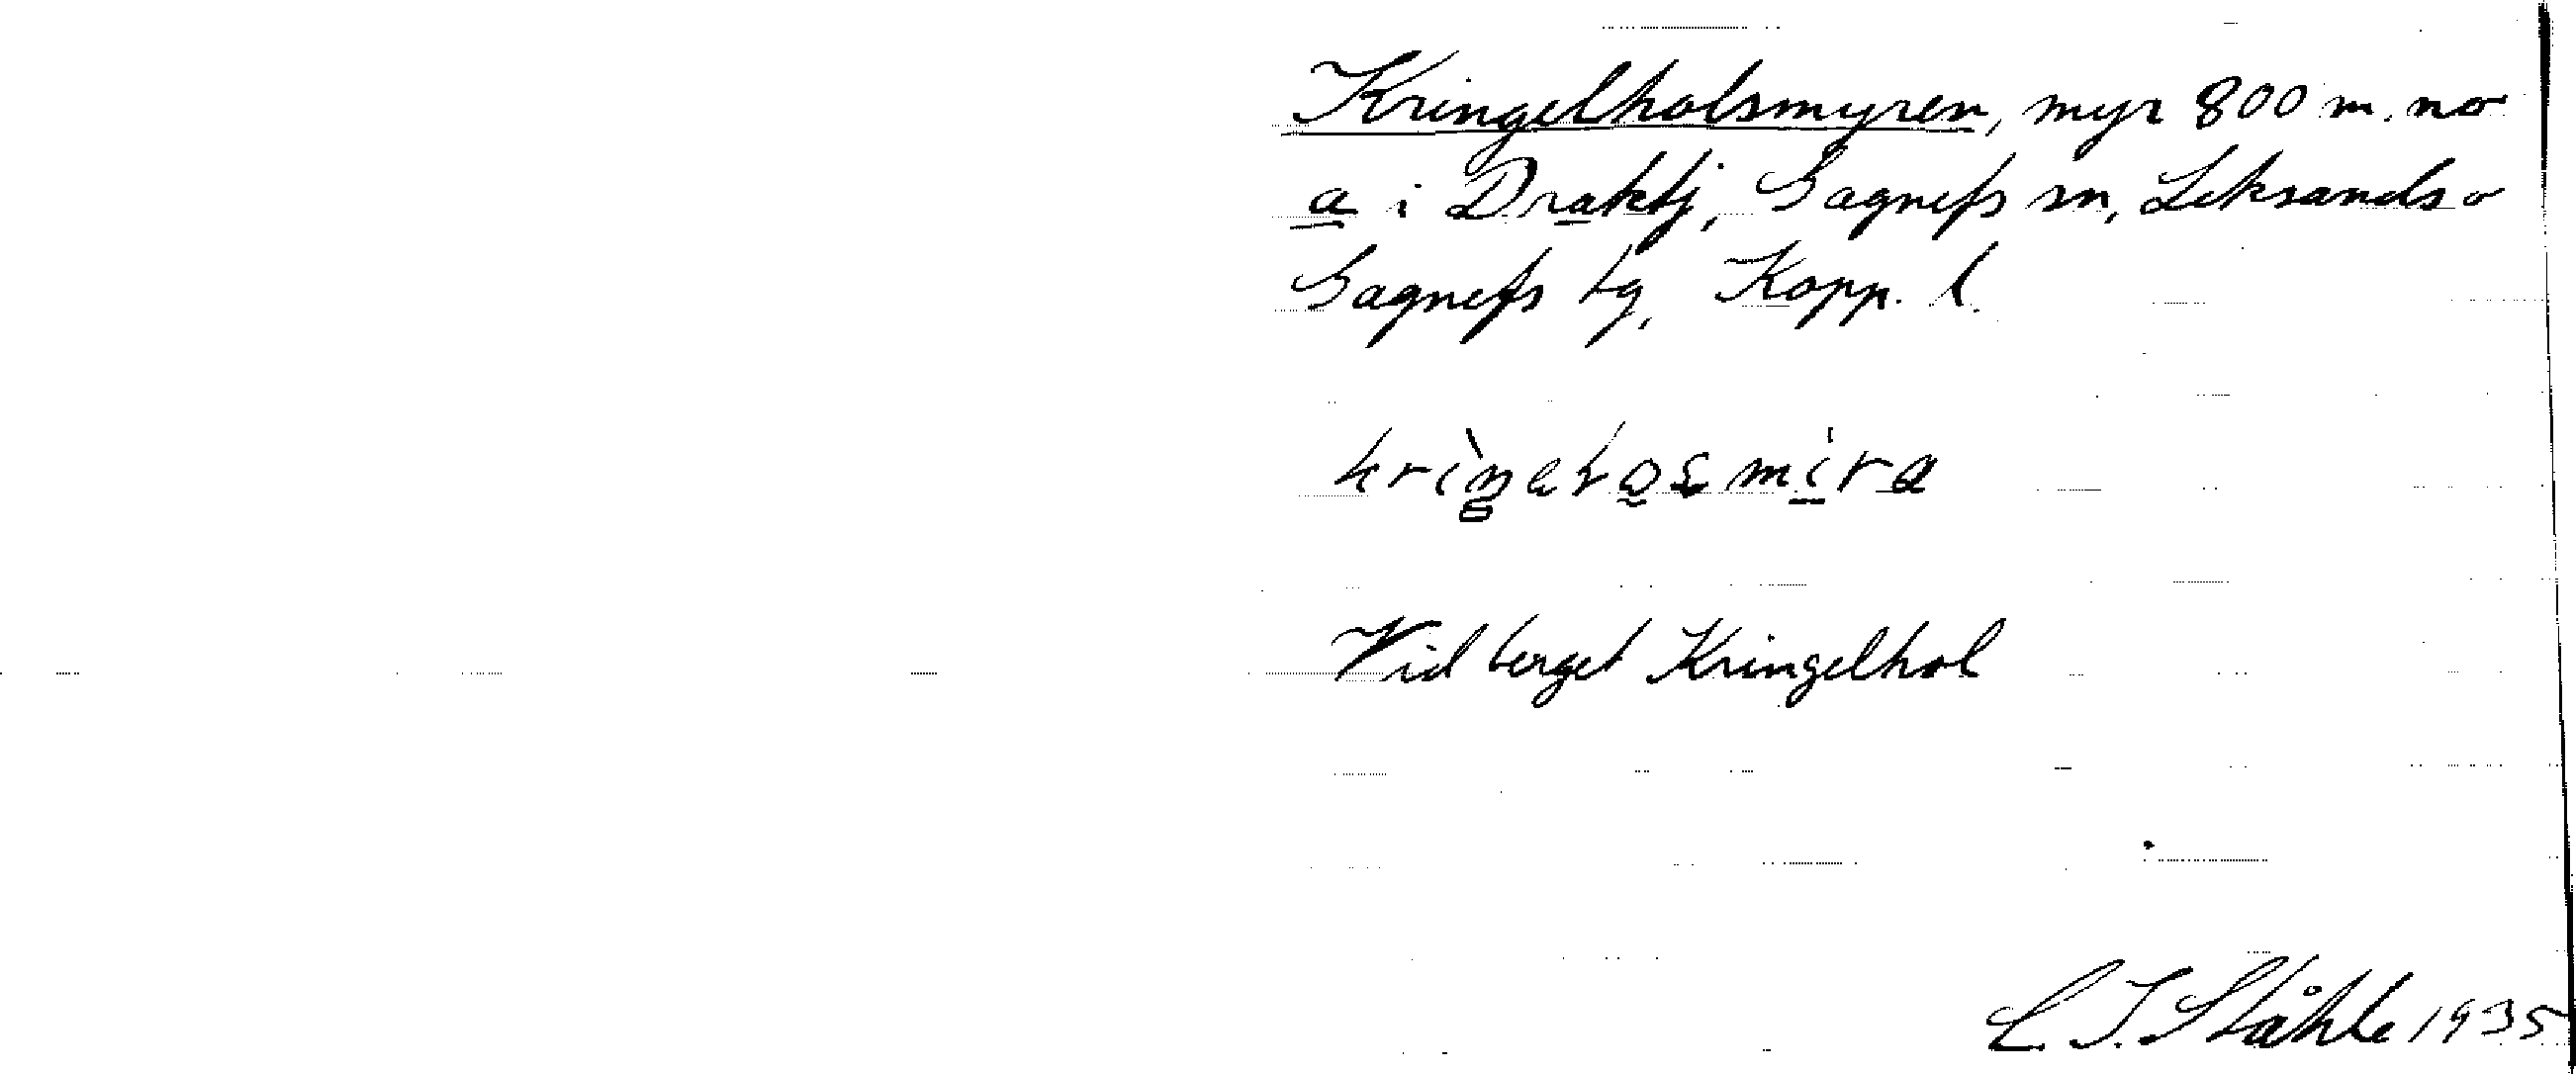 Kringelholsmyren, myr 800 m. no
a i Draktj, Gagnefs sn, Leksands o
Gagnefs tg, Kopp. l.
Vid berget Kringelhol
C. I. Ståhle 1935